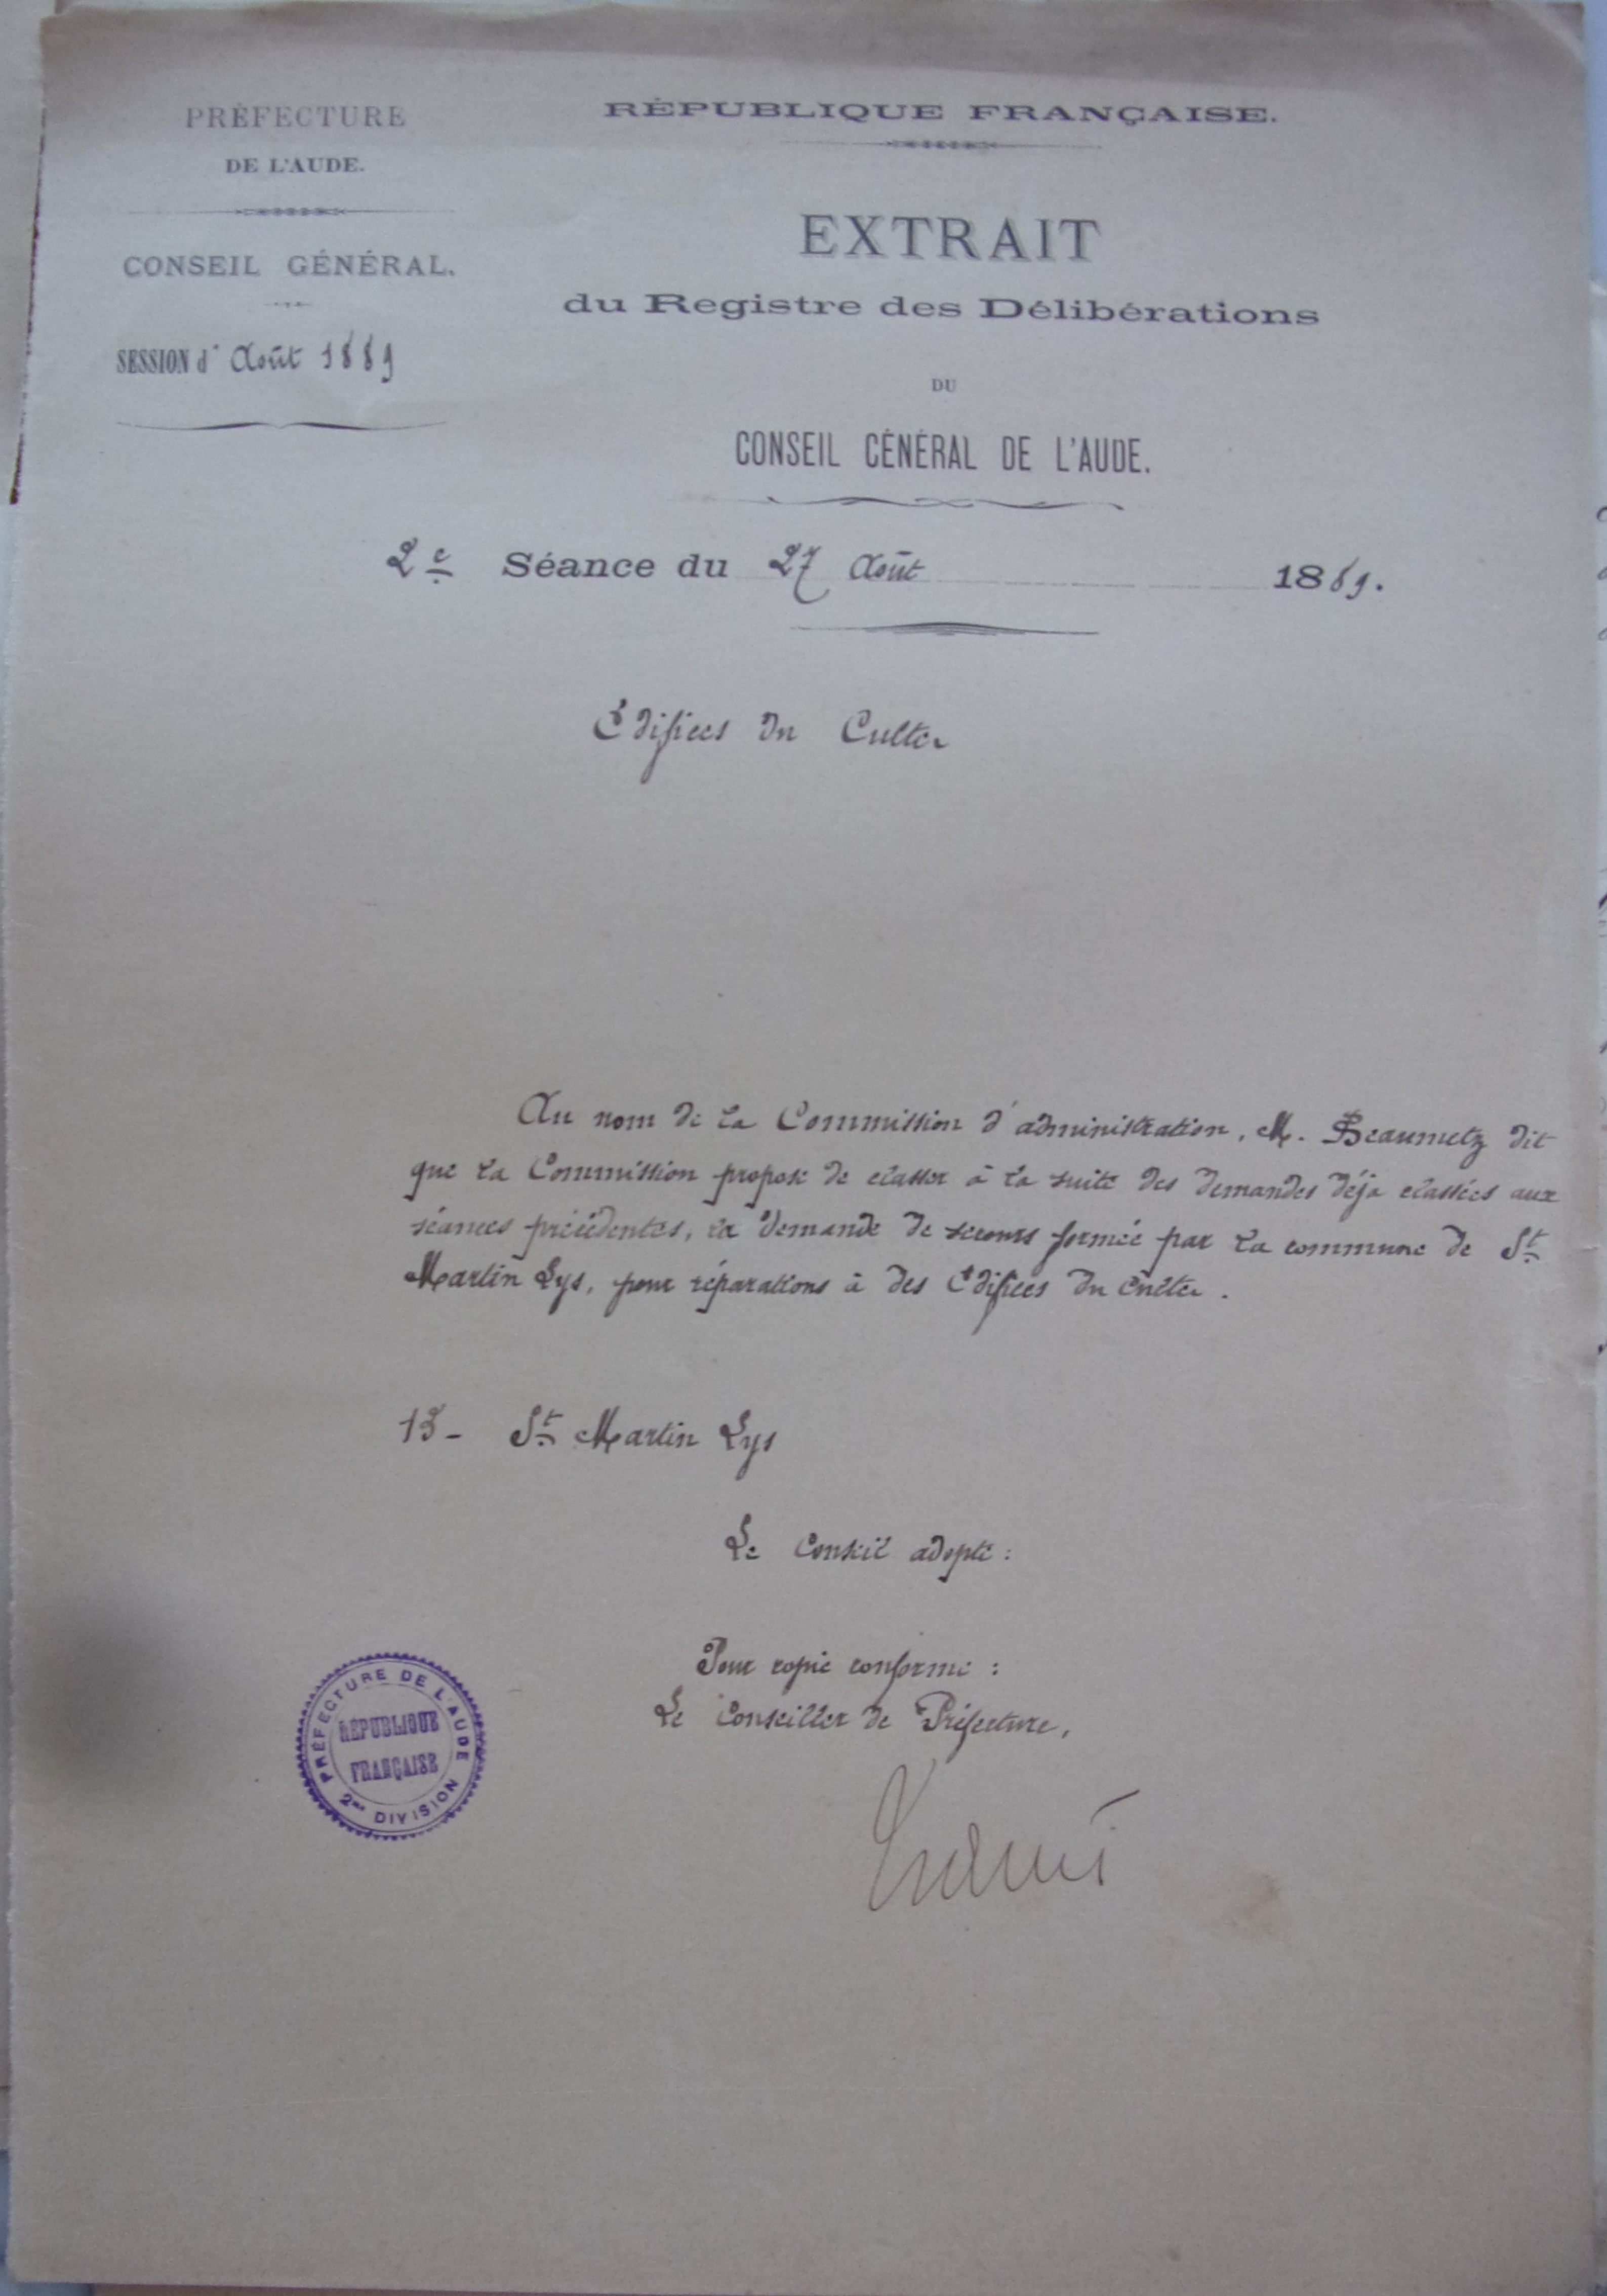 PRÉFECTURE
DE L'AUDE.
CONSEIL GÉNÉRAL.
SESSION d' Août 1889
RÉPUBLIQUE FRANÇAISE.
EXTRAIT
du Registre des Délibérations
DU
CONSEIL GÉNÉRAL DE L'AUDE.
2e Séance du 27 Août 1889.
Édifices du Culte
Au nom de la Commission d'administration, M. Beaumetz dit
que la Commission propose de classer à la suite des demandes déjà classées aux
séances précédentes, la demande de secours formée par la commune de St
Martin Lys, pour réparations à des Édifices du Culte.
13 - St Martin Lys
Le Conseil adopte :
Pour copie conforme :
Le Conseiller de Préfecture,
PRÉFECTURE DE L'AUDE
RÉPUBLIQUE
FRANÇAISE
2me DIVISION